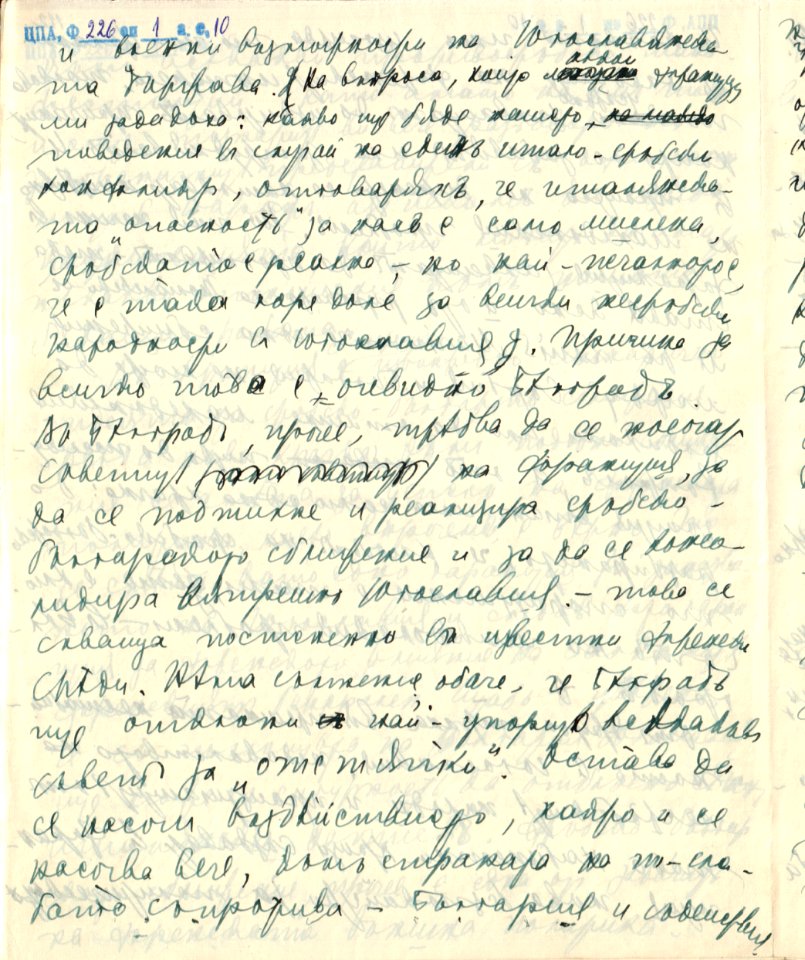 ЦПА, Ф 226 оп 1 а. е. 10
и военни възможности на Югославянска
та държава. На въпроса, който френци
ми зададоха: какво ще бѫде нашето
поведение въ случай на единъ итало-сръбски
конфликтъ, отговаряхъ, че италиянска-
та „опасность" за насъ е само мислена,
сръбската е реална, – но най-печалното е,
че е така наредено за всички несръбски
народности въ Югославия. Причина за
всичко това е очевидно Бѣлградъ.
Въ Бѣлградъ, проче, трѣбва да се насочат
съветит на Франция, за
да се подтикне и реализира сръбско-
българското сближение и за да се консо-
лидира вътрешно Югославия. – това се
схваща постепенно въ известни френски
срѣди. Нѣма съмнение обаче, че Бѣлградъ
ще отклони най-упорито всѣкакъвъ
съветъ за „отстѫпки". Остава да
се насочи въздѣйствието, както и се
насочва вече, към страната на по-сла-
бото съпротива – България и